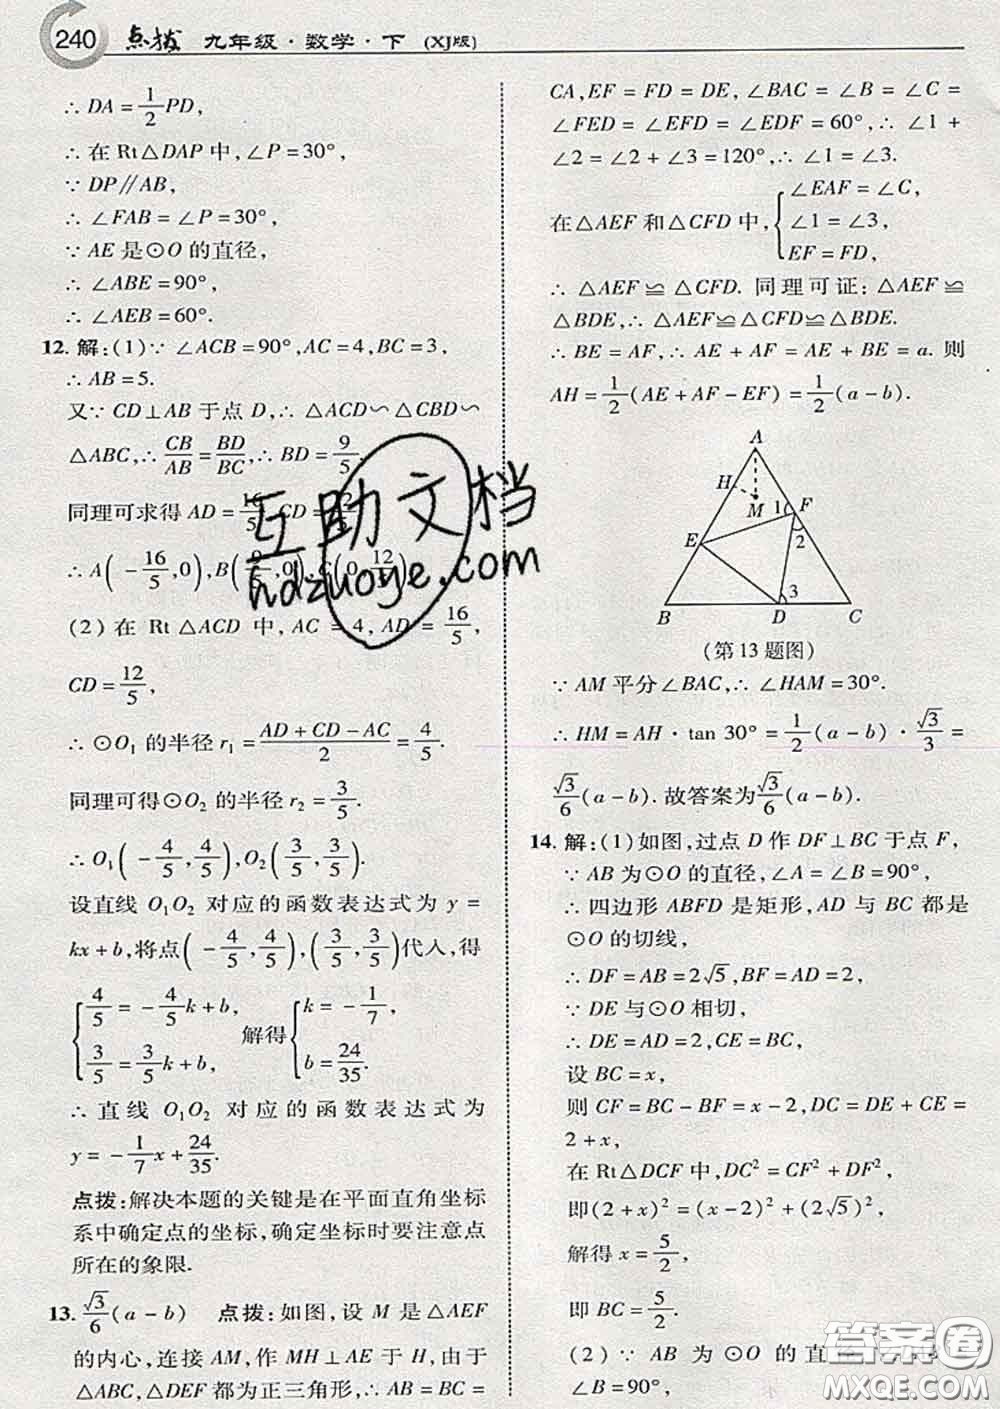 240 点拨 九年级·数学·下 (XJ版)
∴ DA = 1/2 PD,
∴ 在 Rt△DAP 中,∠P = 30°,
∵ DP∥AB,
∴ ∠FAB = ∠P = 30°,
∵ AE 是⊙O 的直径,
∴ ∠ABE = 90°,
∴ ∠AEB = 60°.
12. 解:(1)∵ ∠ACB = 90°,AC = 4,BC = 3,
∴ AB = 5.
又∵ CD⊥AB 于点 D,∴ △ACD∽△CBD∽
△ABC,∴ CB/AB = BD/BC,∴ BD = 9/5.
同理可求得 AD = 16/5, CD = 12/5.
∴ A(-16/5,0), B(9/5,0), C(0,12/5).
(2) 在 Rt△ACD 中, AC = 4, AD = 16/5,
CD = 12/5,
∴ ⊙O₁ 的半径 r₁ = (AD + CD - AC)/2 = 4/5.
同理可得⊙O₂ 的半径 r₂ = 3/5.
∴ O₁(-4/5, 4/5), O₂(3/5, 3/5).
设直线 O₁O₂ 对应的函数表达式为 y =
kx + b,将点(-4/5, 4/5),(3/5, 3/5)代入,得
{4/5 = -4/5 k + b, 3/5 = 3/5 k + b, 解得 {k = -1/7, b = 24/35.
∴ 直线 O₁O₂ 对应的函数表达式为
y = -1/7 x + 24/35.
点拨:解决本题的关键是在平面直角坐标
系中确定点的坐标,确定坐标时要注意点
所在的象限.
13. √3/6 (a - b) 点拨:如图,设 M 是△AEF
的内心,连接 AM,作 MH⊥AE 于 H,由于
△ABC,△DEF 都为正三角形,∴ AB = BC =
CA,EF = FD = DE,∠BAC = ∠B = ∠C =
∠FED = ∠EFD = ∠EDF = 60°,∴ ∠1 +
∠2 = ∠2 + ∠3 = 120°,∴ ∠1 = ∠3.
在△AEF 和△CFD 中, {∠EAF = ∠C, ∠1 = ∠3, EF = FD,
∴ △AEF≌△CFD. 同理可证:△AEF≌
△BDE,∴ △AEF≌△CFD≌△BDE.
∴ BE = AF,∴ AE + AF = AE + BE = a. 则
AH = 1/2 (AE + AF - EF) = 1/2 (a - b).
A
H
M
1
F
2
E
3
B
D
C
(第 13 题图)
∵ AM 平分∠BAC,∴ ∠HAM = 30°.
∴ HM = AH · tan 30° = 1/2 (a - b) · √3/3 =
√3/6 (a - b). 故答案为 √3/6 (a - b).
14. 解:(1)如图,过点 D 作 DF⊥BC 于点 F,
∵ AB 为⊙O 的直径,∠A = ∠B = 90°,
∴ 四边形 ABFD 是矩形,AD 与 BC 都是
⊙O 的切线,
∴ DF = AB = 2√5,BF = AD = 2,
∵ DE 与⊙O 相切,
∴ DE = AD = 2,CE = BC,
设 BC = x,
则 CF = BC - BF = x - 2,DC = DE + CE =
2 + x,
在 Rt△DCF 中,DC² = CF² + DF²,
即(2 + x)² = (x - 2)² + (2√5)²,
解得 x = 5/2,
即 BC = 5/2.
(2) ∵ AB 为⊙O 的直径
∠B = 90°,
互助文档
hdzuoye.com
答案圈
MXQE.COM